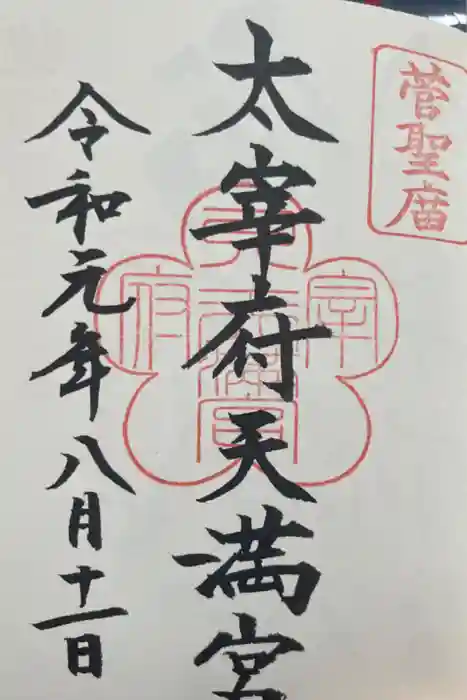 菅聖廟
太宰府天満宮
令和元年八月十一日